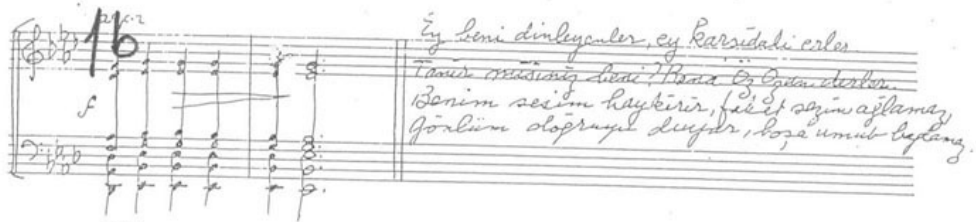 16
Ey beni dinleyenler, ey karsıdaki erler
Tanır mısınız beni? Bana Öz Ozan derler.
Benim sesim haykırır, fakat sazım ağlamaz,
Gönlüm doğruyu duyar, boşa umut bağlamaz.
f